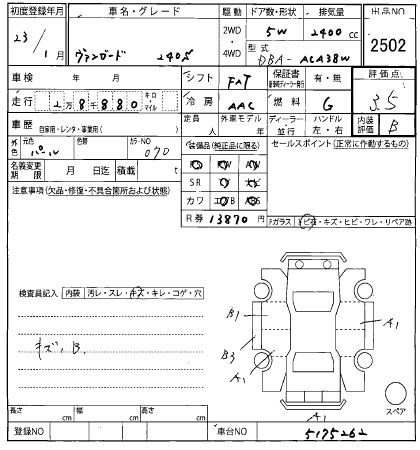 初度登録年月 車名・グレード 駆動 ドア数・形状 排気量 出品NO
23 1月 ヴァンガード 240S 2WD・4WD 5W 2400cc 2502
型式 DBA-ACA38W
車検 年 月 シフト FAT 保証書 有・無 評価点
走行 2万8千880 キロ・マイル 冷房 AAC 燃料 G 3.5
車歴 自家用・レンタ・事業用( ) 定員 人 外車モデル 年 ディーラー・並行 ハンドル 左・右 内装評価 B
外色 元色 パール 色替 カラーNO 070 装備品(純正品に限る) セールスポイント(正常に作動するもの)
名義変更期限 月 日迄 積載 t
SR
注意事項(欠品・修復・不具合箇所および状態) カワ
R券 13870円 Fガラス ヒ゛石・キズ・ヒビ・ワレ・リペア跡
検査員記入 内装 汚レ・スレ・キズ・キレ・コゲ・穴
キズ、B
B1
A1
B3
A1
A1
スペア
長さ cm 幅 cm 高さ cm
登録NO 車台NO 5175262